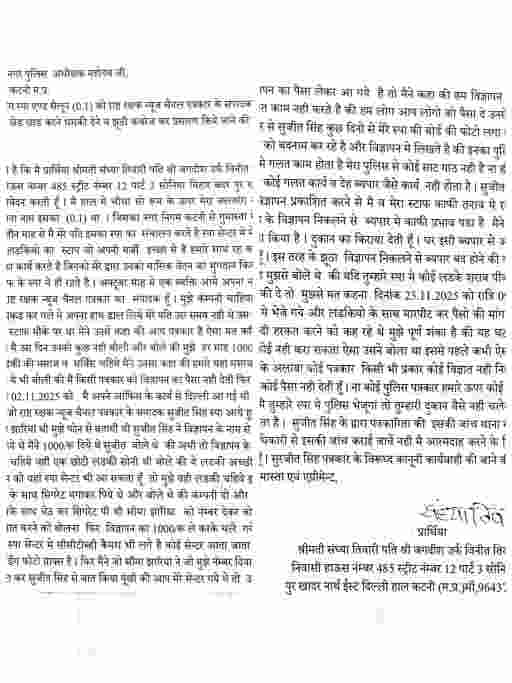 नगर पुलिस अधीक्षक महोदय जी,
कटनी म.प्र.
स्पा एण्ड सैलून (0.1) को राष्ट्र रक्षक न्यूज चैनल पत्रकार के संपादक
छेड छाड करने धमकी देने व झूठी कवरेज कर प्रसारण किये जाने की
है कि मै प्रार्थिया श्रीमती संध्या तिवारी पति श्री जगदीश उर्फ विनीत
हाऊस नंम्बर 485 स्ट्रीट नंम्बर 12 पार्ट 3 सोनिया विहार
करती हूँ । मै हाल मे
नाम इसका (0.1) था । जिसका स्पा निगम कटनी से गुमास्ता
माह से मै मेरे पति इसका स्पा का संचालन करते है स्पा सेन्टर मे
लडकियो का स्टाप जो अपनी मर्जी इच्छा से है हमारे साथ रह
कार्य करते है जिनको मेरे द्वारा उनको मासिक वेतन का भुगतान
के स्पा ने ही रहते है । अक्टूबर माह मे एक व्यक्ति आये अपना
राष्ट्र रक्षक न्यूज चैनल पत्रकार का संपादक हूँ । मुझे कंम्पनी चाहिये
कर मने अपना हाथ डाल लिये मेरे पति उस समय नही थे
स्टाफ मौके पर था मैने उससे कहा की आप पत्रकार है ऐसा मत
मै आ दिन उनको कुछ नही बोली और बोले की मुझे हर माह 1000
की मसाज व सर्विस चहिये मैने उससे कहा की हमारे यहा मसाज
थे भी बोली की मै किसी पत्रकार को विज्ञापन का पैसा नही देती फिर
02.11.2025 को मै अपने आफिस के कार्य से दिल्ली आ गई थी
राष्ट्र रक्षक न्यूज चैनल पत्रकार के संपादक सुजीत सिंह स्पा आये
झारिया थी मुझे फोन से बतायी थी सुजीत सिंह ने विज्ञापन के नाम से
थे मैने 1000/क दिये थे सुजीत बोले थे की अभी तो विज्ञापन के
चहिये वही एक छोटी लडकी सोनी थी बोली की वे लडकी अच्छी
को यहां स्पा सेन्टर भी आ सकता हूँ तो मुझे वही लडकी चहिये
के साथ सिगरेट मंगाकर पिये थे और बोले थे की कंम्पनी दो और
के साथ बैठ कर सिगरेट पी थी सीमा झारिया को नंम्बर देकर
बात करने को बोलना फिर विज्ञापन का 1000/क ले करके चले
स्पा सेन्टर मे सीसीटीव्ही कैमरा भी लगे है कोई सेन्टर आता जाता
फोटो प्राप्त है । फिर मैने जो सीमा झारिया ने जो मुझे नंम्बर दिया
कर सुजीत सिंह से बात किया पूंछी की आप मेरे सेन्टर गये थे तो
विज्ञापन का पैसा लेकर आ गये है तो मैने कहा की हम विज्ञापन
काम नही करते है की हम लोग आप लोगो को पैसा दे उनसे
से सुजीत सिंह कुछ दिनो से मेरे स्पा की बोर्ड की फोटो लगा
को बदनाम कर रहे है और विज्ञापन मे लिखते है की इनका पुलिस
मे गलत काम होता है मेरा पुलिस से कोई साट गाठ नही है ना ही
कोई गलत कार्य व देह व्यपार जैसे कार्य नही होता है । सुजीत
विज्ञापन प्रकाशित करने से मै व मेरा स्टाफ काफी तराव मे है
के विज्ञापन निकलने से व्यपार मे काफी प्रभाव पडा है मैने
किया है । दुकान का किराया देती हूँ । पर इसी व्यपार से
। इस तरह के झूठा विज्ञापन निकलने से व्यपार बंद होने की
मुझसे बोले थे की यदि तुम्हारे स्पा मे कोई लडके शराब पीकर
की दे तो मुझसे मत कहना दिनांक 23.11.2025 को रात्रि
से भेजे गये और लडकियो के साथ मारपीट कर पैसो की मांग
हरकत करने को कह रहे थे मुझे पूर्ण शंका है की यह घटना
कोई नही करा सकता ऐसा उसने बोला था इससे पहले कभी
के अलावा कोई पत्रकार किसी भी प्रकार कोई विज्ञात नही
कोई पैसा नही देती हूँ । ना कोई पुलिस पत्रकार हमारे ऊपर कोई
मै तुम्हारे स्पा मे पुलिस भेजूगां तो तुम्हारी दुकान वैसे नही चलेगी
है । सुजीत सिंह के द्वारा पत्रकारिता की इसकी जांच थाना
अधिकारी से इसकी जांच कराई जावे नही मै आत्मदाह करने के
। सुरजीत सिंह पत्रकार के विरूध्द कानूनी कार्यवाही की जाने
गुमास्ता एवं एग्रीमेन्ट,
प्रार्थिया
श्रीमती संध्या तिवारी पति श्री जगदीश उर्फ विनीत
निवासी हाऊस नंम्बर 485 स्ट्रीट नंम्बर 12 पार्ट 3
पुर खादर नार्थ ईस्ट दिल्ली हाल कटनी (म.प्र.)मो.9643